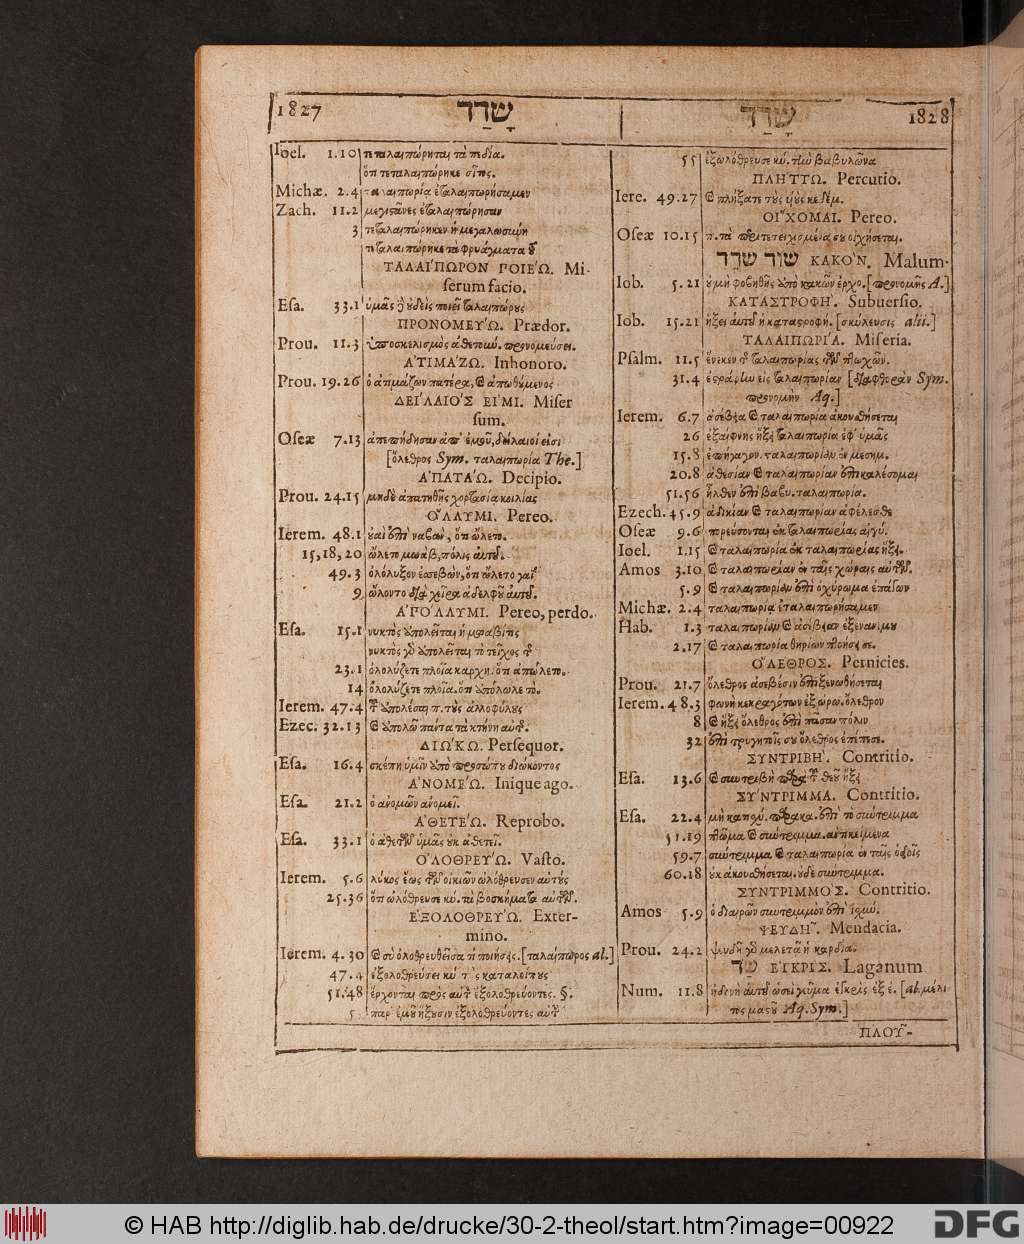 1827 שָׁדַד
שָׁדַד 1828
Ioel. 1.10 τεταλαιπώρηται τὰ πεδία.
ὅτι τεταλαιπώρηκε σῖτος.
Michæ. 2.4 ταλαιπωρία ἐταλαιπωρήσαμεν
Zach. 11.2 μεγιστᾶνες ἐταλαιπώρησαν
3 τεταλαιπώρηκεν ἡ μεγαλωσύνη
τεταλαιπώρηκε τὰ φρυάγματα τοῦ
ΤΑΛΑΙΠΩΡΟΝ ΠΟΙΕΩ. Mi-
serum facio.
Esa. 33.1 ὑμᾶς οὐδεὶς ποιεῖ ταλαιπώρους
ΠΡΟΝΟΜΕΥΩ. Prædor.
Prou. 11.3 ὑποσκελισμὸς ἀθετοιύ. προνομεύσει.
ΑΤΙΜΑΖΩ. Inhonoro.
Prou. 19.26 ὁ ἀτιμάζων πατέρα, καὶ ἀπωθούμενος
ΔΕΙΛΑΙΟΣ ΕΙΜΙ. Miser
sum.
Oseæ 7.13 ἀπεπήδησαν ἀπ' ἐμοῦ, δείλαιοί εἰσι
[ὄλεθρος Sym. ταλαιπωρία The.]
ΑΠΑΤΑΩ. Decipio.
Prou. 24.15 μηδὲ ἀπατηθῇς χορτασία κοιλίας
ΟΛΛΥΜΙ. Pereo.
Ierem. 48.1 οὐαὶ ἐπὶ ναβαυ, ὅτι ὤλετο.
15,18,20 ὤλετο μωάβ, πόλις αὐτοῦ.
49.3 ὀλόλυξον ἐσεβών, ὅτι ὤλετο γαΐ
9 ὤλοντο διὰ χεῖρα ἀδελφοῦ αὐτοῦ.
ΑΠΟΛΛΥΜΙ. Pereo, perdo.
Esa. 15.1 νυκτὸς ἀπολεῖται ἡ μωαβῖτις
νυκτὸς γὰρ ἀπολεῖται τὸ τεῖχος τῆς
23.1 ὀλολύζετε πλοῖα καρχη. ὅτι ἀπώλετο.
14 ὀλολύζετε πλοῖα. ὅτι ἀπόλωλε τὸ.
Ierem. 47.4 τοῦ ἀπολέσαι π. τοὺς ἀλλοφύλους
Ezec. 32.13 καὶ ἀπολῶ πάντα τὰ κτήνη αὐτῆς.
ΔΙΩΚΩ. Persequor.
Esa. 16.4 σκέπη ὑμῖν ἀπὸ προσώπου διώκοντος
ΑΝΟΜΕΩ. Inique ago.
Esa. 21.2 ὁ ἀνομῶν ἀνομεῖ.
ΑΘΕΤΕΩ. Reprobo.
Esa. 33.1 ὁ ἀθετῶν ὑμᾶς οὐκ ἀθετεῖ.
ΟΛΟΘΡΕΥΩ. Vasto.
Ierem. 5.6 λύκος ἕως τῶν οἰκιῶν ὠλόθρευσεν αὐτούς
25.36 ὅτι ὠλόθρευσε κύ. τὰ βοσκήματα αὐτῶν.
ΕΞΟΛΟΘΡΕΥΩ. Exter-
mino.
Ierem. 4.30 καὶ σὺ ὀλοθρευθεῖσα τί ποιήσεις. [ταλαίπωρος al.]
47.4 ἐξολοθρεύσει κύ. τοὺς καταλοίπους
51.48 ἔρχονται πρὸς αὐτὴν ἐξολοθρεύοντες. §.
5 παρ' ἐμοῦ ἥξουσιν ἐξολοθρεύοντες αὐτήν
55 ἐξωλόθρευσε κύ. τὴν βαβυλῶνα
ΠΛΗΤΤΩ. Percutio.
Iere. 49.27 καὶ πλήξατε τοὺς υἱοὺς κεδέμ.
ΟΙΧΟΜΑΙ. Pereo.
Oseæ 10.15 π. τὰ περιτετειχισμένα σου οἰχήσεται.
שׁוֹד שֹׁדֵד ΚΑΚΟΝ. Malum.
Iob. 5.21 οὐ μὴ φοβηθῇς ἀπὸ κακῶν ἐρχο. [προνομῆς A.]
ΚΑΤΑΣΤΡΟΦΗ. Subuersio.
Iob. 15.21 ἥξει αὐτοῦ ἡ καταστροφή. [σκύλευσις alii.]
ΤΑΛΑΙΠΩΡΙΑ. Miseria.
Psalm. 11.5 ἕνεκεν τῆς ταλαιπωρίας τῶν πτωχῶν.
31.4 ἐστράφην εἰς ταλαιπωρίαν [διαφθορὰν Sym.
προνομὴν Aq.]
Ierem. 6.7 ἀσέβεια καὶ ταλαιπωρία ἀκουσθήσεται
26 ἐξαίφνης ἥξει ταλαιπωρία ἐφ' ὑμᾶς
15.8 ἐπήγαγον. ταλαιπωρίαν ἐν μεσημ.
20.8 ἀθεσίαν καὶ ταλαιπωρίαν ἐπικαλέσομαι
51.56 ἦλθεν ἐπὶ βαβυ. ταλαιπωρία.
Ezech. 45.9 ἀδικίαν καὶ ταλαιπωρίαν ἀφέλεσθε
Oseæ 9.6 πορεύσονται ἐκ ταλαιπωρίας αἰγύ.
Ioel. 1.15 καὶ ταλαιπωρία ἐκ ταλαιπωρίας ἥξει.
Amos 3.10 καὶ ταλαιπωρίαν ἐν ταῖς χώραις αὐτῶν.
5.9 καὶ ταλαιπωρίαν ἐπὶ ὀχύρωμα ἐπάγων
Michæ. 2.4 ταλαιπωρία ἐταλαιπωρήσαμεν
Hab. 1.3 ταλαιπωρίαν καὶ ἀσέβειαν ἐξεναν. μου
2.17 καὶ ταλαιπωρία θηρίων πτοήσει σε.
ΟΛΕΘΡΟΣ. Pernicies.
Prou. 21.7 ὄλεθρος ἀσεβέσιν ἐπιξενωθήσεται
Ierem. 48.3 φωνὴ κεκραγότων ἐξ ὠρω. ὄλεθρον
8 καὶ ἥξει ὄλεθρος ἐπὶ πᾶσαν πόλιν
32 ἐπὶ τρυγηταῖς σου ὄλεθρος ἐπέπεσε.
ΣΥΝΤΡΙΒΗ. Contritio.
Esa. 13.6 καὶ συντριβὴ παρὰ τοῦ θεοῦ ἥξει
ΣΥΝΤΡΙΜΜΑ. Contritio.
Esa. 22.4 μὴ κατιχύ. παρακα. ἐπὶ τὸ σύντριμμα
51.19 πτῶμα καὶ σύντριμμα. ἀντικείμενα
59.7 σύντριμμα καὶ ταλαιπωρία ἐν ταῖς ὁδοῖς
60.18 οὐκ ἀκουσθήσεται. οὐδὲ σύντριμμα.
ΣΥΝΤΡΙΜΜΟΣ. Contritio.
Amos 5.9 ὁ διαιρῶν συντριμμὸν ἐπὶ ἰσχύ.
ΨΕΥΔΗ. Mendacia.
Prou. 24.2 ψευδῆ γὰρ μελετᾷ ἡ καρδία.
שַׁד ΕΓΚΡΙΣ. Laganum
Num. 11.8 ἡδονὴ αὐτοῦ ὡσεὶ γεῦμα ἐγκρὶς ἐξ ἐ. [al. μέλι-
τος μασοῦ Aq. Sym.]
ΠΛΟΥ-
© HAB http://diglib.hab.de/drucke/30-2-theol/start.htm?image=00922
DFG